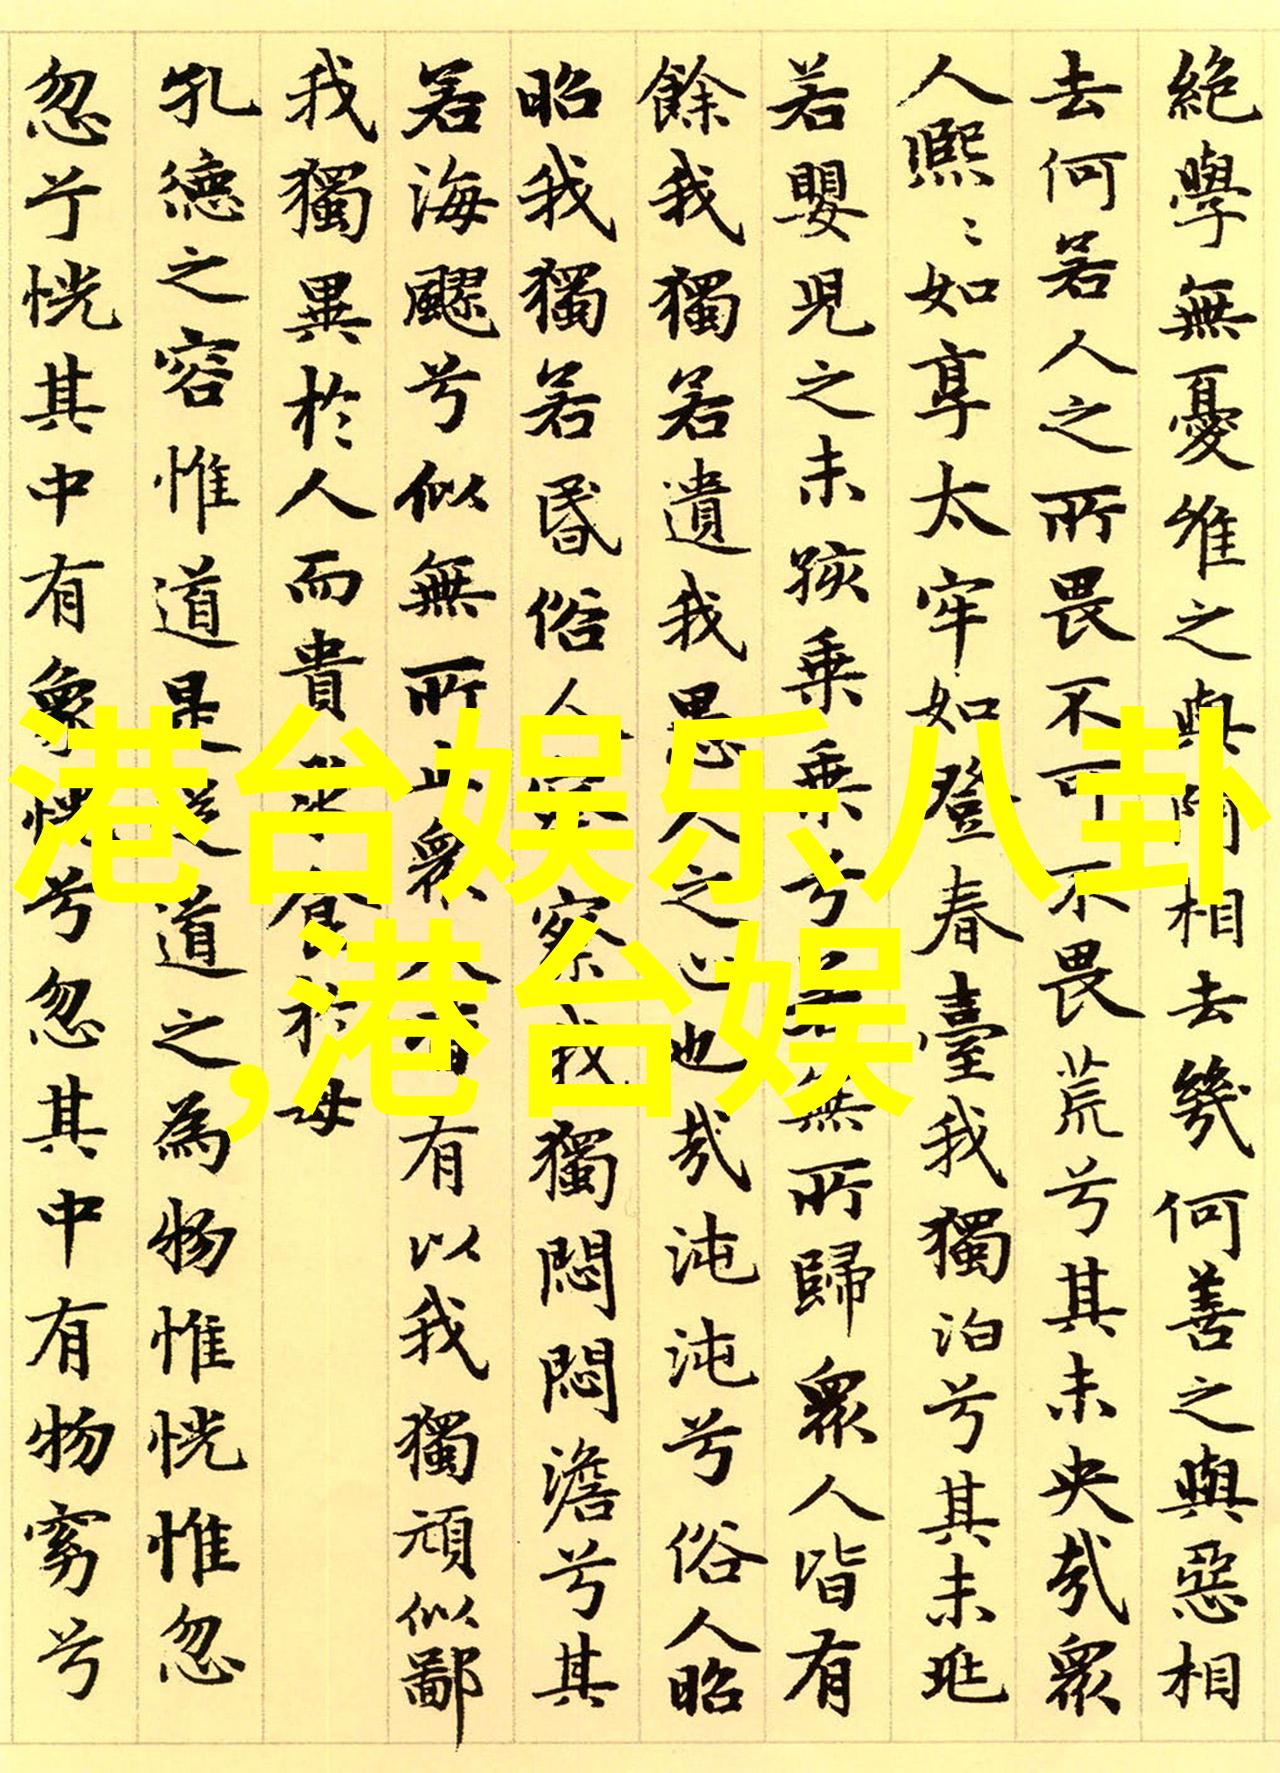 絶學無憂唯之與阿相去幾何善之與惡相
去何若人之所畏不可不畏荒兮其未央哉衆
人熙〻如享太牢如登春臺我獨泊兮其未兆
若嬰兒之未孩乗乗兮若無所歸衆人皆有
餘我獨若遺我愚人之心也哉沌沌兮俗人昭
昭我獨若昬俗人察察我獨悶悶澹兮其
若海飂兮似無所止衆人皆有以我獨頑似鄙
我獨異於人而貴求食於母
孔德之容惟道是從道之為物惟恍惟忽
忽兮恍其中有象恍兮忽其中有物窈兮
港台娱乐八卦
,港台娱